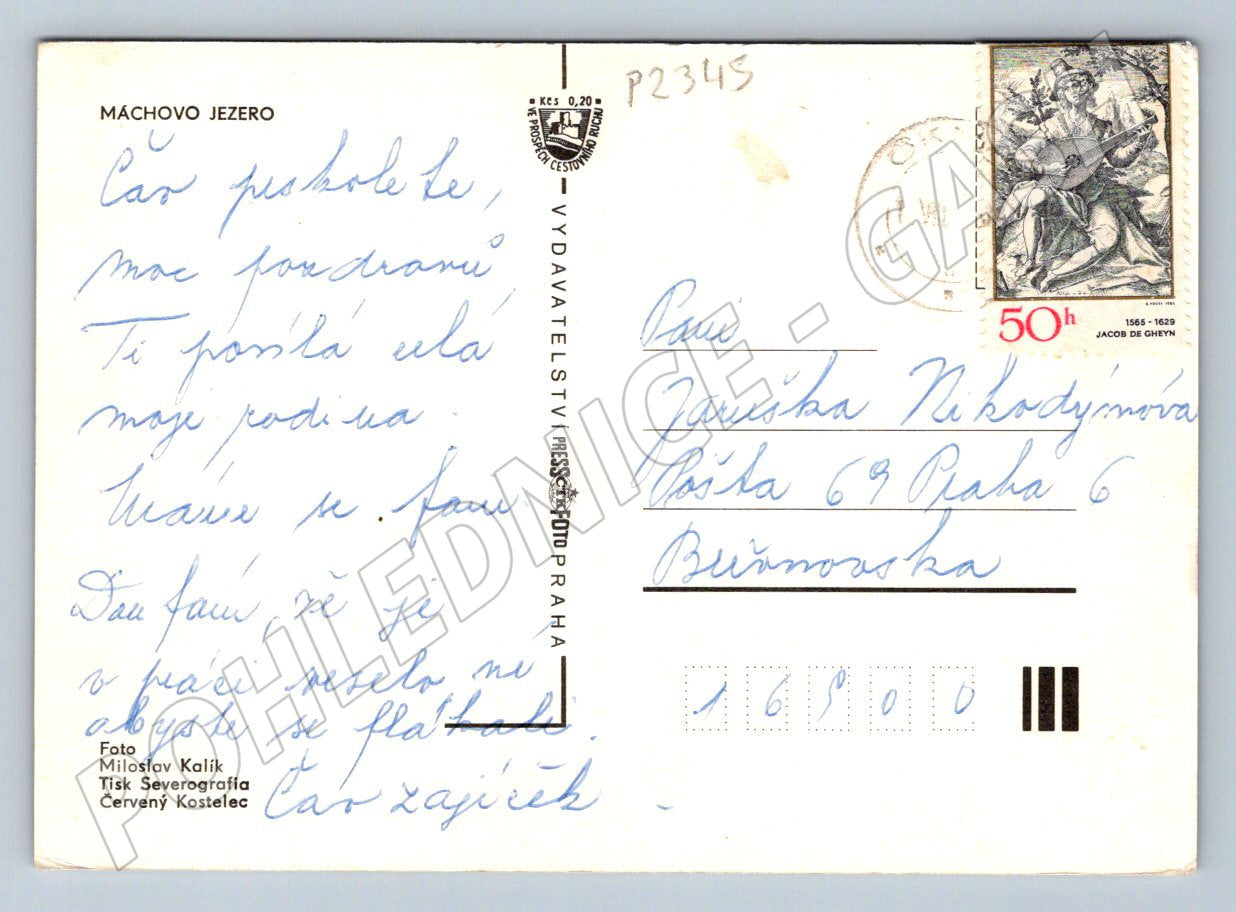 MÁCHOVO JEZERO
Čav peskolete,
moc pozdravů
Ti posílá celá
moje rodina.
Máme se fain.
Dou fám, že je
v práci veselo né
abyste se flákali.
Čav zajíček
Foto
Miloslav Kalík
Tisk Severografia
Červený Kostelec
Kčs 0,20
VE PROSPĚCH CESTOVNÍHO RUCHU
VYDAVATELSTVÍ PRESSFOTO PRAHA
ČTK
P2345
50h
1565 - 1629
JACOB DE GHEYN
Paní
Jaruška Nikodýmová
Pošta 69 Praha 6
Břevnovska
16900
POHLEDNICE - GA